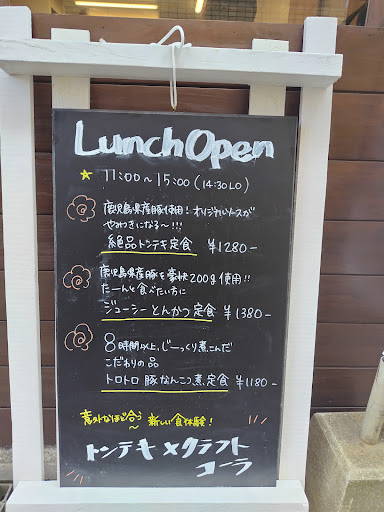 Lunch Open
11:00~15:00 (14:30LO)
鹿児島県産豚使用!オリジナルソースが
やみつきになる~!!!
絶品トンテキ定食 ¥1280-
鹿児島県産豚を豪快200g使用!!
たーんと食べたい方に
ジューシーとんかつ定食 ¥1380-
8時間以上、じーっくり煮こんだ
こだわりの品
トロトロ豚なんこつ煮定食 ¥1180-
意外なほど合う
~新しい食体験!
トンテキ×クラフト
コーラ